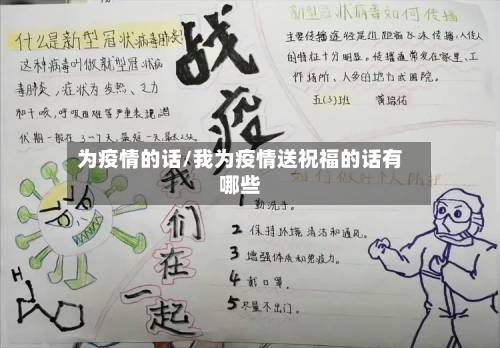 什么是新型冠状病毒肺炎
这种病毒叫做新型冠状病
毒肺炎,症状为发热、乏力
和干咳,呼吸困难等严重表现潜
伏期一般在3一7天,最短一天,最长
战疫
我们在一起
新型冠状病毒如何传播
主要传播途径是近距离飞沫传播,人传人
的特征十分明显。传播通常发在家里、工
作场所、人多的地方或医院。
五(3)班
为疫情的话/我为疫情送祝福的话有
哪些
如何做好个人防护
1 勤洗手。
2 保持环境清洁和通风。
3 增强体质和免疫力。
4 戴口罩。
5 尽量不出门。
H